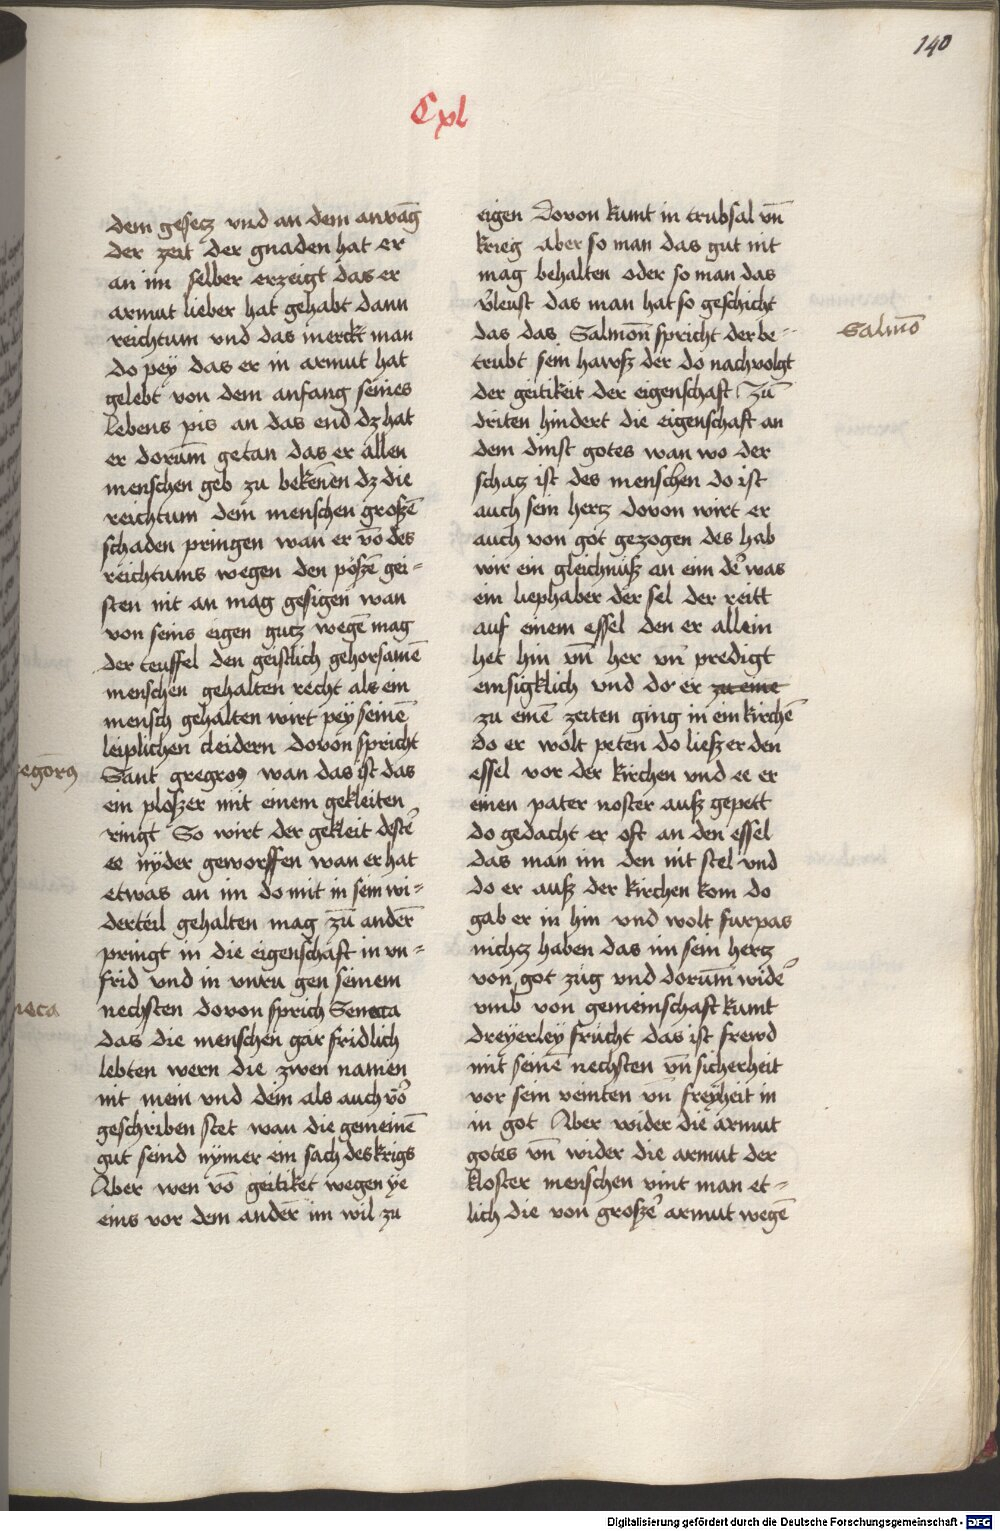 140
Cxl
dem gesecz vnd an dem anvāg
der zeit der gnaden hat er
an im selber erzeigt das er
armut lieber hat gehabt dann
reichtum vnd das merckt man
do pey das er in armut hat
gelebt von dem anfang seines
lebens pis an das end dz hat
er dorum̄ getan das er allen
menschen geb zu bekēnen dz die
reichtum dem menschen großē
schaden pringen wan er vō des
reichtums wegen den pößē gei-
sten nit an mag gesigen wan
von seins eigen gutz wegē mag
der teuffel den geistlich gehorsamē
menschen gehalten recht als ein
mensch gehalten wirt pey seinē
leiplichen cleidern dovon spricht
Sant gregorꝰ wan das ist das
ein ploßer mit einem gekleiten
ringt So wirt der gekleit destꝰ
ee nyder geworffen wan er hat
etwas an im do mit in sein wi-
derteil gehalten mag zū andern̄
pringt in die eigenschaft in vn-
frid vnd in vnru gen seinem
nechsten dovon sprich Seneca
das die menschen gar fridlich
lebten wern die zwen namen
nit mein vnd dein als auch vōꝰ
geschriben stet wan die gemeinē
gut seind nymer ein sach des krigs
Aber wen vō geitiket wegen ye
eins vor dem andern̄ im wil zu
egorꝰ
neca
eigen Dovon kumt in trubsal vn̄
krieg aber so man das gut nit
mag behalten oder so man das
v̓leust das man hat so geschicht
das das Salmon̄ spricht der be-
trubt sein hawß der do nachvolgt
der geitikeit der eigenschaft Zū
driten hindert die eigenschaft an
dem dinst gotes wan wo der
schacz ist des menschen do ist
auch sein hertz dovon wirt er
auch von got gezogen des hab
wir ein gleichnuß an eim deꝰ was
ein liephaber der sel der reitt
auf einem essel den er allein
het hin vn̄ her vn̄ predigt
emsigklich vnd do er zu eine
zu einē zeiten ging in ein kirchē
do er wolt peten do ließ er den
essel vor der kirchen vnd ee er
einen pater noster auß gepett
do gedacht er oft an den essel
das man im den nit stel vnd
do er auß der kirchen kom do
gab er in hin vnd wolt furpas
nichcz haben das im sein hertz
von got züg vnd dorum̄ wideꝰ
vmb von gemeinschaft kumt
dreyerley frücht das ist frewd
mit seinē nechsten vn̄ sicherheit
vor sein veinten vn̄ freyheit in
in got Aber wider die armut
gotes vn̄ wider die armut der
kloster menschen vint man et-
lich die von großeꝰ armut wegē
Salmō
Digitalisierung gefördert durch die Deutsche Forschungsgemeinschaft - DFG